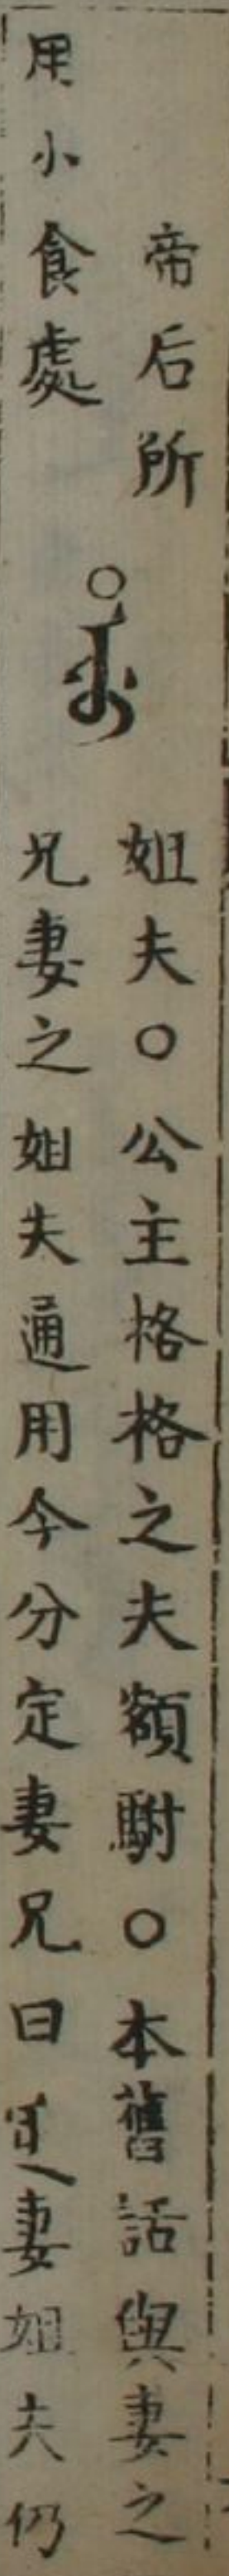 帝后所
用小食處
○ᡝᡶᡠ
姐夫○公主格格之夫額駙○本舊話與妻之
兄妻之姐失通用今分定妻兄曰妻姐夫仍